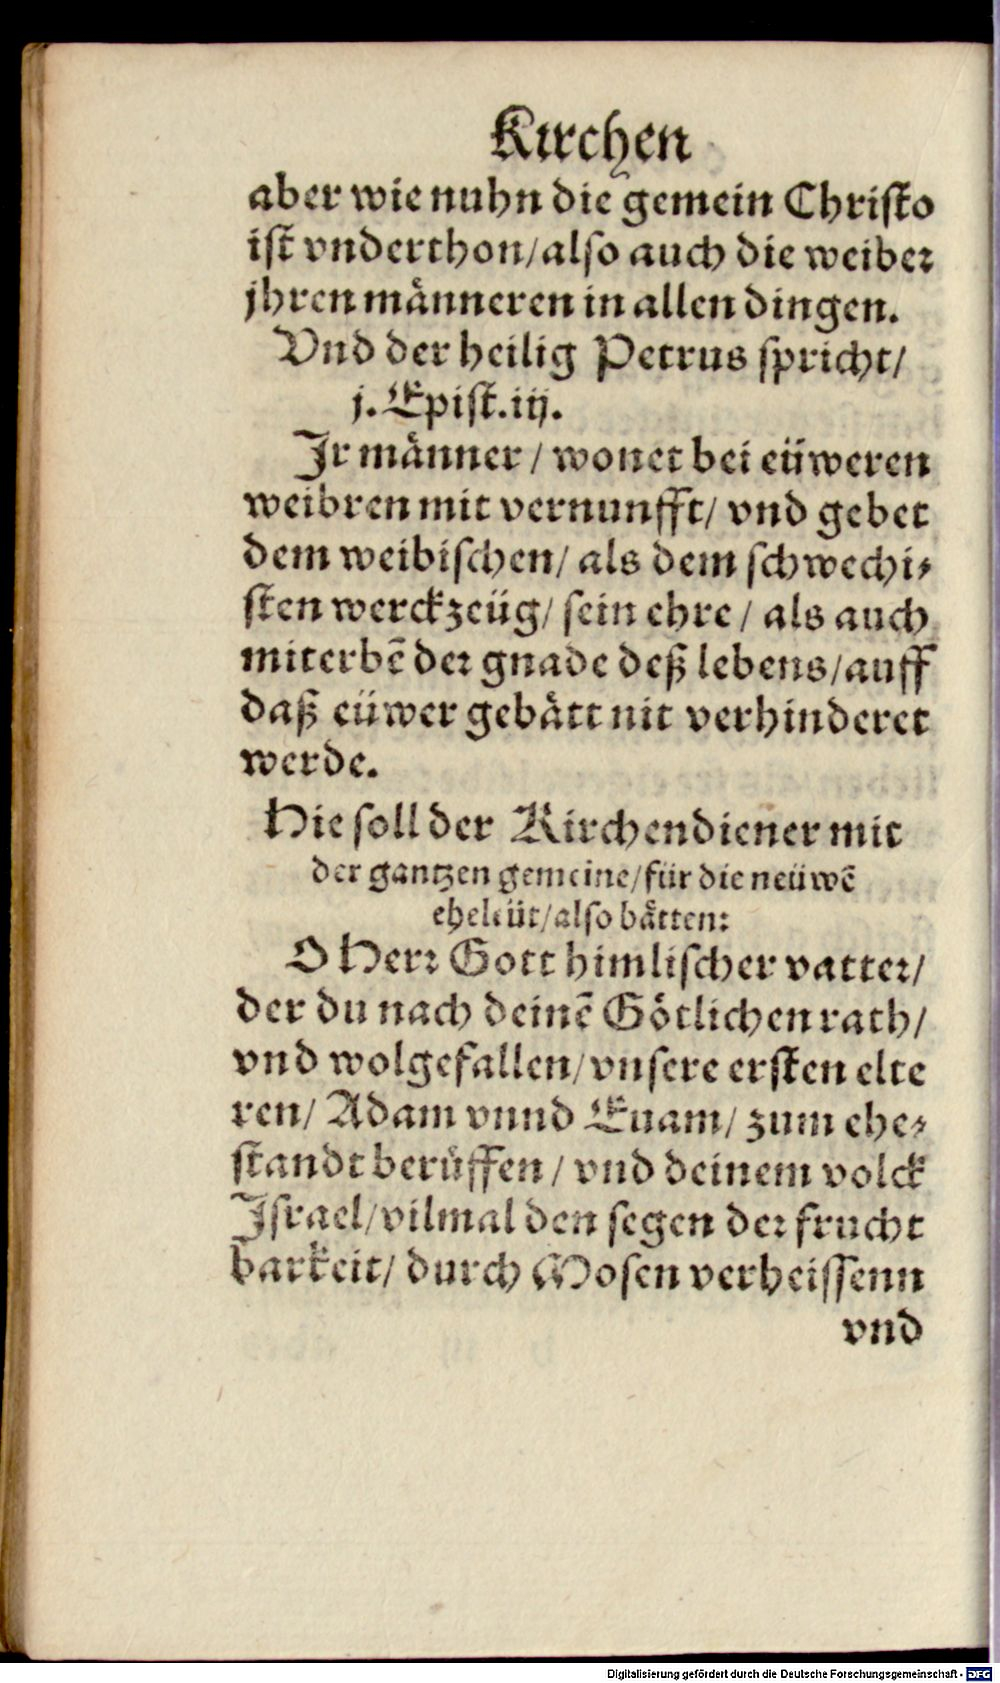 Kirchen
aber wie nuhn die gemein Christo
ist vnderthon/also auch die weiber
jhren männeren in allen dingen.
Vnd der heilig Petrus spricht/
j. Epist. iij.
Ir männer / wonet bei eüweren
weibren mit vernunfft/ vnd gebet
dem weibischen/ als dem schwechi-
sten werckzeüg/ sein ehre / als auch
miterbē der gnade deß lebens/auff
daß eüwer gebätt nit verhinderet
werde.
Hie soll der Kirchendiener mit
der gantzen gemeine/für die neüwē
eheleüt/also bätten:
O Herr Gott himlischer vatter/
der du nach deinē Götlichen rath/
vnd wolgefallen/vnsere ersten elte
ren/ Adam vnnd Euam/ zum ehe-
standt berůffen / vnd deinem volck
Israel/vilmal den segen der frucht
barkeit/ durch Mosen verheissenn
vnd
Digitalisierung gefördert durch die Deutsche Forschungsgemeinschaft - DFG